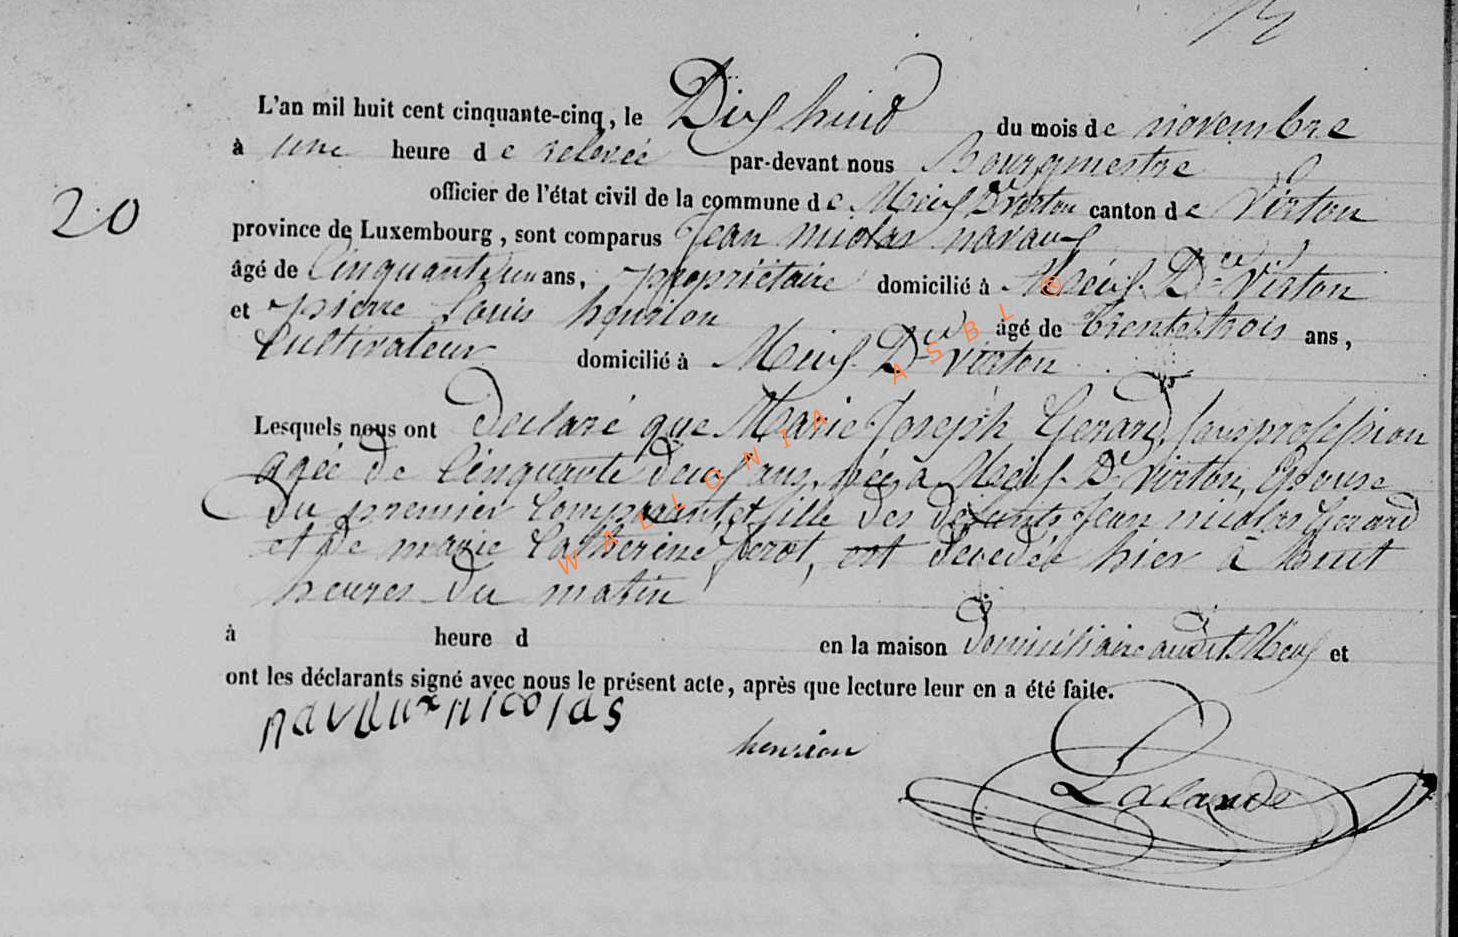 L'an mil huit cent cinquante-cinq, le Dix huit du mois de novembre
à une heure de relevée par-devant nous Bourgmestre
officier de l'état civil de la commune de Meix Dt virton canton de Virton
20
province de Luxembourg, sont comparus Jean nicolas navaux
âgé de Cinquante un ans, propriétaire domicilié à Meix Dt Virton
et pierre Louis henrion âgé de trente trois ans,
Cultivateur domicilié à Meix Dt virton
Lesquels nous ont declaré que Marie Joseph Gerard, sans profession
agée de Cinquante deux ans, née a Meix Dt Virton, Epouse
du premier Comparant et fille des defunts Jean nicolas Gerard
et de marie Catherine Jerot, est decedée hier à huit
heures du matin
à heure d en la maison domiciliaire audit Meix et
ont les déclarants signé avec nous le présent acte, après que lecture leur en a été faite.
navaux nicolas
henrion
Lalande
WALLONIA ASBL ®